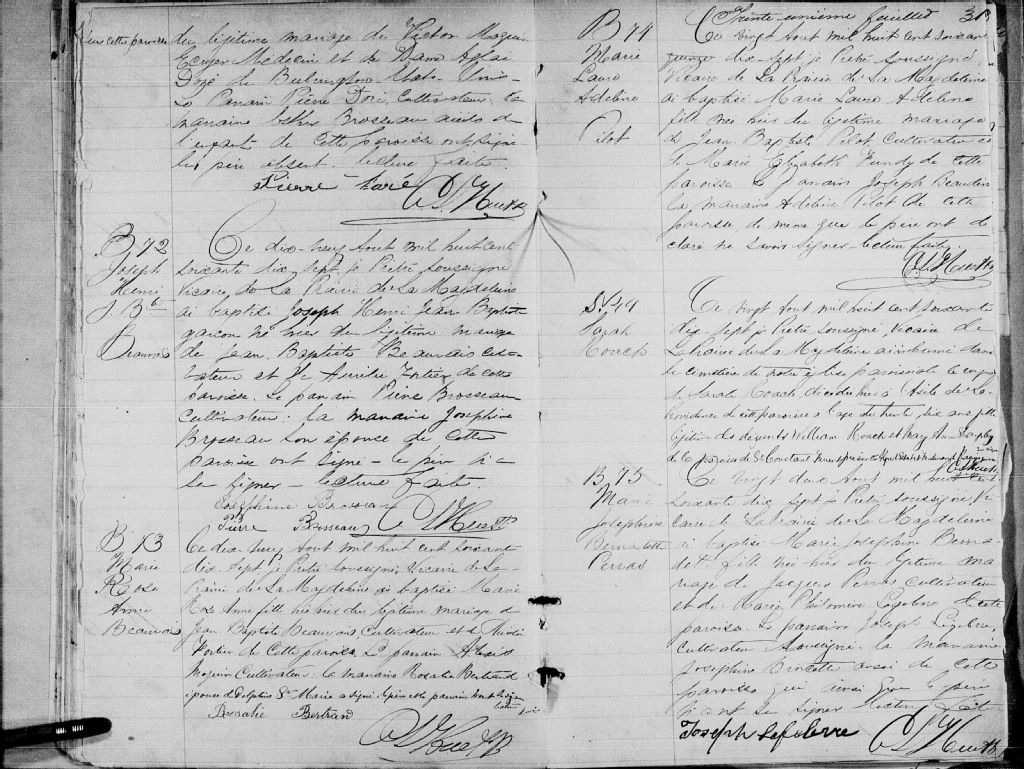 du légitime mariage de Victor
Ecuyer Médecin et de Dame
Doré de Burlington Etats Unis
Le Parrain Pierre Doré, Cultivateur, la
marraine Esther Brosseau aussi de
de cette paroisse ont signé
le père absent. lecture faite.
Pierre Doré
B 72
Joseph
Henri
J. Bte
Beauvais
Ce dix-neuf Aout mil huit cent
soixante dix-sept je Prêtre soussigné
Vicaire de La Prairie de La Magdeleine
ai baptisé Joseph Henri Jean Baptiste
garçon né hier du légitime mariage
de Jean Baptiste Beauvais culti-
vateur et de Aurélie Fortier de cette
paroisse. Le parrain Pierre Brosseau
Cultivateur, la marraine Josephine
Brosseau son épouse de cette
paroisse ont signé - le père n'a
su signer - lecture faite.
Joséphine Brosseau
Pierre Brosseau
B 73
Marie
Rose
Anna
Beauvais
Ce dix neuf Aout mil huit cent soixante
dix-sept, je Prêtre soussigné, Vicaire de La
Prairie de La Magdeleine ai baptisé Marie
Rose Anna fille née hier du légitime mariage de
Jean Baptiste Beauvais Cultivateur et de Aurélie
Fortier de Cette paroisse Le parrain Alexis
Cultivateur, la marraine Rosalie Bertrand
épouse de Delphis Ste Marie a signé le père et le parrain
Rosalie Bertrand
Trente unième feuillet 31
B 74
Marie
Laura
Adeline
Pilot
Ce vingt Aout mil huit cent soixante
dix-sept je Prêtre Soussigné
Vicaire de La Prairie de La Magdeleine
ai baptisé Marie Laura Adeline
fille née hier du légitime mariage
de Jean Baptiste Pilot Cultivateur et
de Marie Elizabeth de Cette
paroisse Le parrain Joseph
la marraine Adeline Pilot de Cette
paroisse de même que le père ont dé-
claré ne savoir signer lecture faite.
S. 44
Sarah
Roach
Ce vingt Aout mil huit cent soixante
dix-sept je Prêtre soussigné Vicaire de
LaPrairie de La Magdeleine ai inhumé dans
le cimetière de notre église paroissiale le corps
de Sarah Roach, décédée hier à l'Asile de La
Providence de cette paroisse à l'age de trente dix ans fille
légitime des défunts William Roach et Mary Ann
de la paroisse de St Constant
B 75
Marie
Josephine
Bernadette
Perras
Ce vingt deux Aout mil huit cent
soixante dix sept je Prêtre soussigné Vi-
caire de La Prairie de La Magdeleine
ai baptisé Marie Josephine Berna-
dette fille née hier du légitime ma-
riage de Jacques Perras Cultivateur
et de Marie Philomène Lefebvre de cette
paroisse. Le parrain Joseph Lefebvre
Cultivateur soussigné, la marraine
Josephine aussi de Cette
paroisse qui ainsi que le père
n'ont su signer lecture faite
Joseph Lefebvre